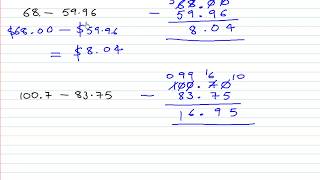 68 - 59.96
68.00
$68.00 - $59.96
- 59.96
= $8.04
8.04
0 9 9 16 10
100.7 - 83.75
100.70
- 83.75
16.95